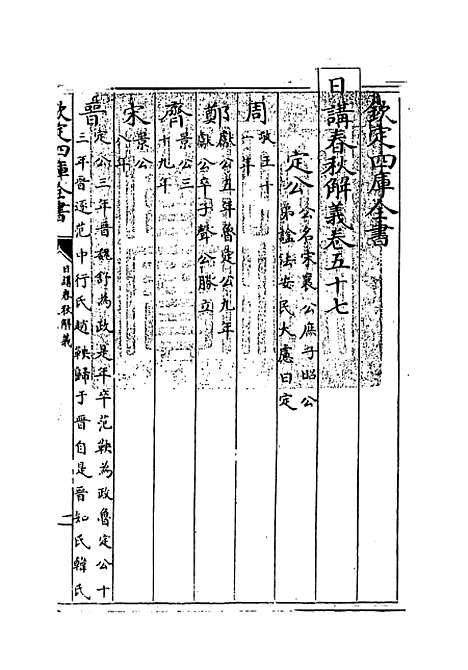 欽定四庫全書
日講春秋解義卷五十七
定公 公名宋襄公庶子昭公
弟諡法安民大慮曰定
周 敬王十
一年
鄭 獻公五年魯定公九年
獻公卒子聲公勝立
齊 景公三
十九年
宋 景公
八年
晉 定公三年晉魏舒為政是年卒范鞅為政魯定公十
三年晉逐范中行氏趙鞅歸于晉自是晉知氏韓氏
欽定四庫全書
日講春秋解義